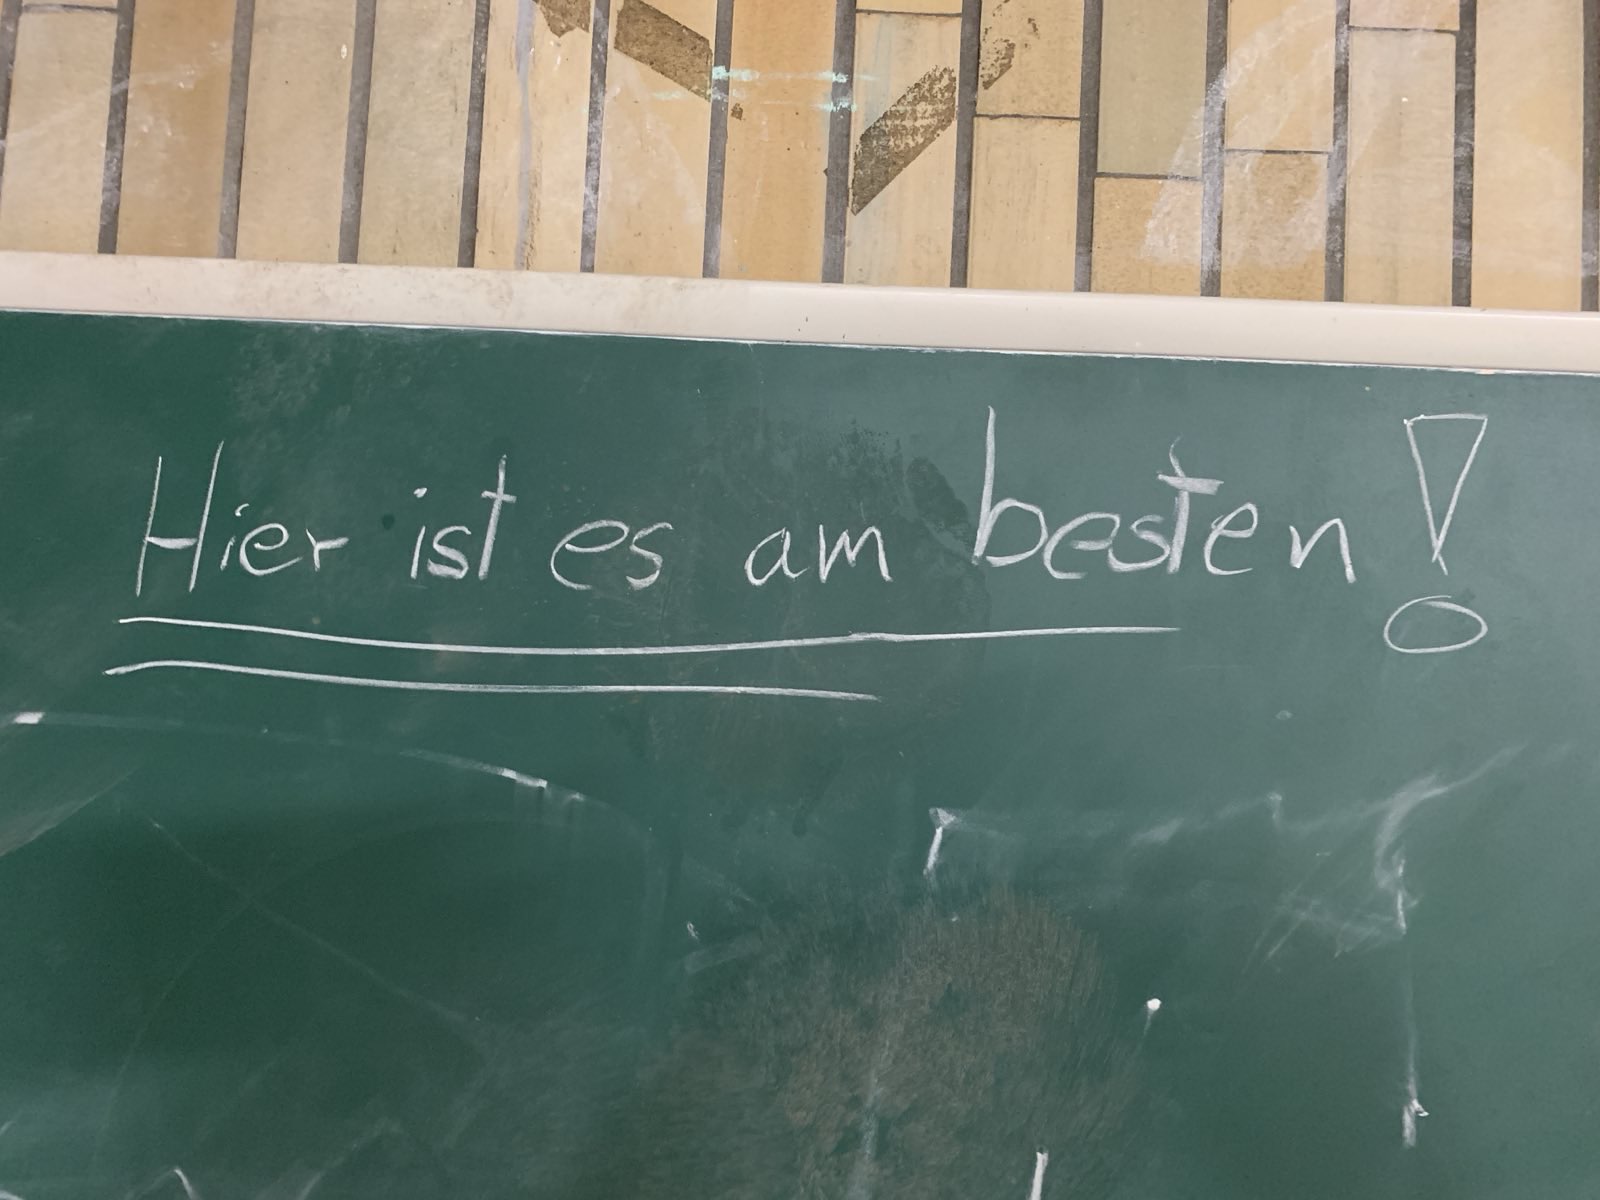 Hier ist es am besten!